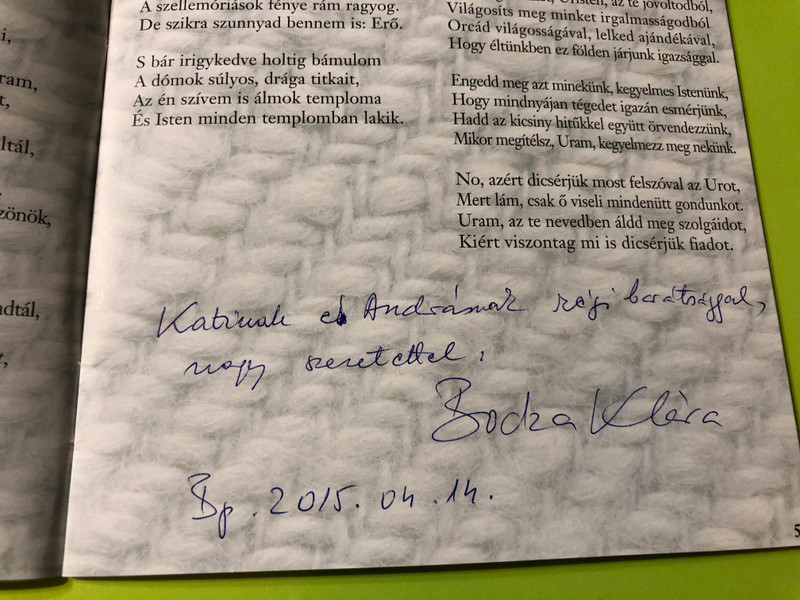 i,
ram,
t,
ltál,
zönök,
adtál,
t,
A szellemóriások fénye rám ragyog.
De szikra szunnyad bennem is: Erő.
S bár irigykedve holtig bámulom
A dómok súlyos, drága titkait,
Az én szívem is álmok temploma
És Isten minden templomban lakik.
Úristen, az te jóvoltodból,
Világosíts meg minket irgalmasságodból
Orcád világosságával, lelked ajándékával,
Hogy éltünkben ez földen járjunk igazsággal.
Engedd meg azt minekünk, kegyelmes Istenünk,
Hogy mindnyájan tégedet igazán esmérjünk,
Hadd az kicsiny hitűkkel együtt örvendezzünk,
Mikor megítélsz, Uram, kegyelmezz meg nekünk.
No, azért dicsérjük most felszóval az Urot,
Mert lám, csak ő viseli mindenütt gondunkot.
Uram, az te nevedben áldd meg szolgáidot,
Kiért viszontag mi is dicsérjük fiadot.
Katinak és Andrásnak régi barátsággal,
nagy szeretettel:
Bodza Klára
Bp. 2015. 04. 14.
5